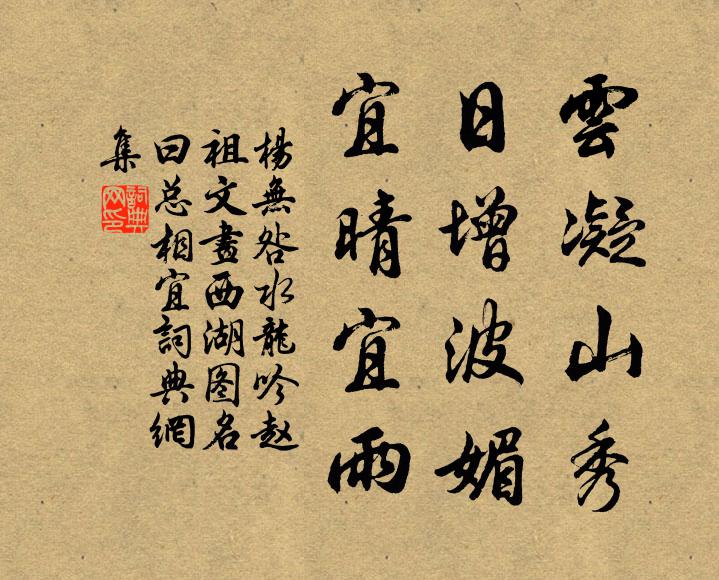 雲凝山秀
日增波媚
宜晴宜雨
楊無咎水龍吟赵
祖文畫西湖图名
曰总相宜詞典網
集
詞典
网印